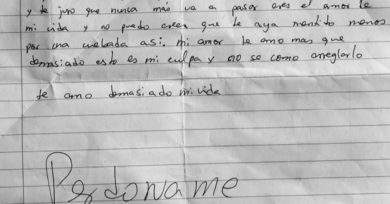 y te juro que nunca mas va a pasar eres el amor de
mi vida y no puedo creer que te aya mentido menos
por una webada asi. mi amor te amo mas que
demasiado esto es mi culpa y no se como arreglarlo
te amo demasiado mi vida
Perdoname